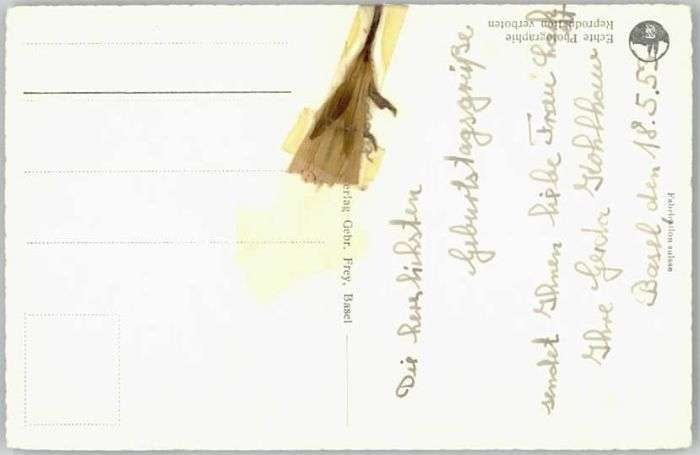 Die herzlichsten
Geburtstagsgrüße
sendet Ihnen liebe Frau
Ihre Gerda Kohlhaus
Basel den 18.5.5
Echte Photographie
Reproduktion verboten
Verlag Gebr. Frey, Basel
Fabrikation suisse